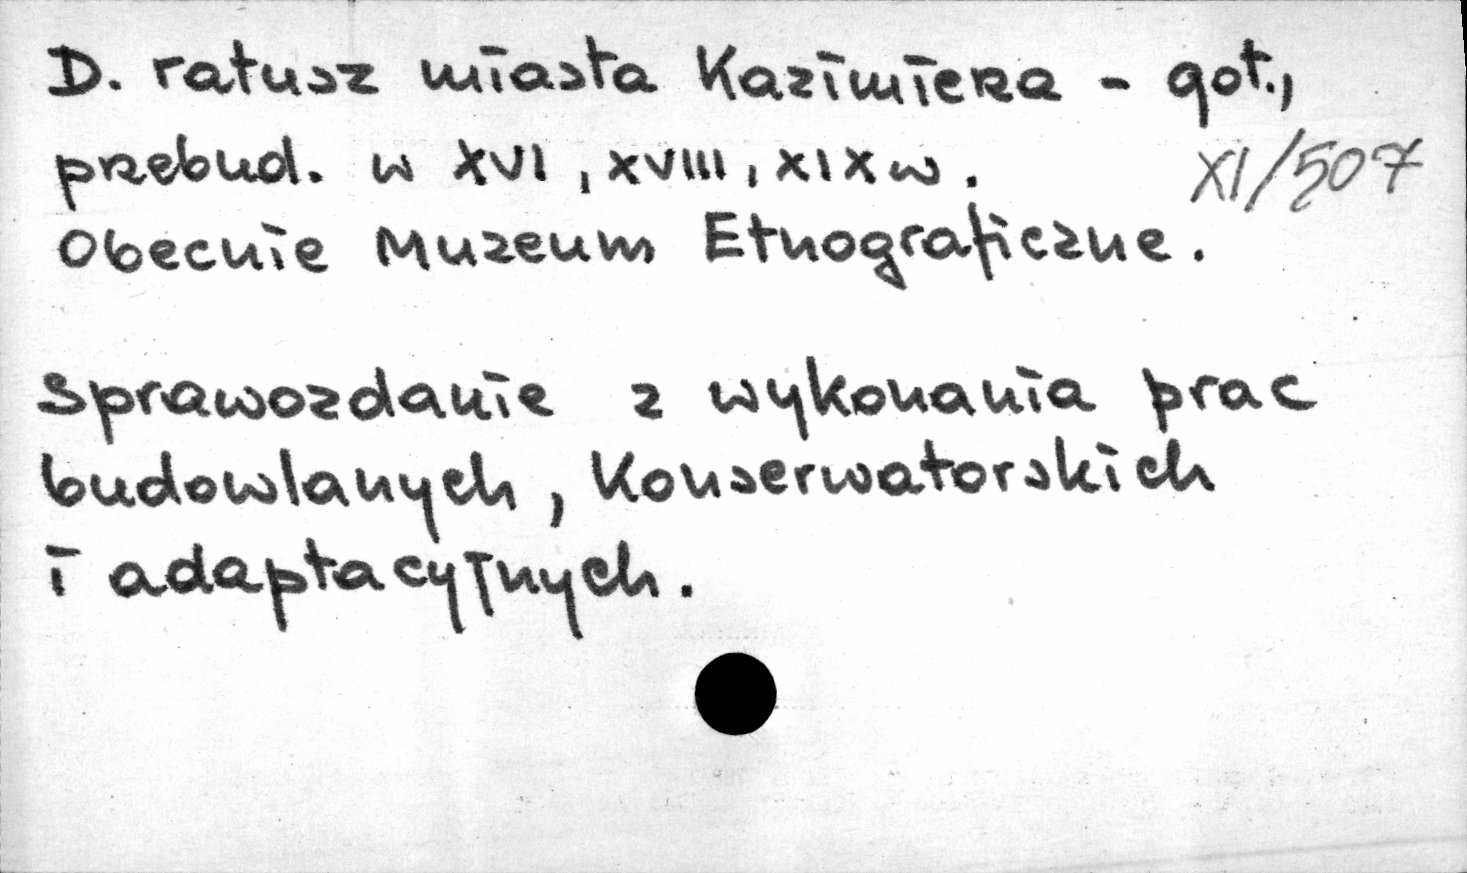 D. ratusz miasta Kazimierza - got.,
przebud. w XVI, XVIII, XIX w.
XI/507
Obecnie Muzeum Etnograficzne.
Sprawozdanie z wykonania prac
budowlanych, Konserwatorskich
i adaptacyjnych.